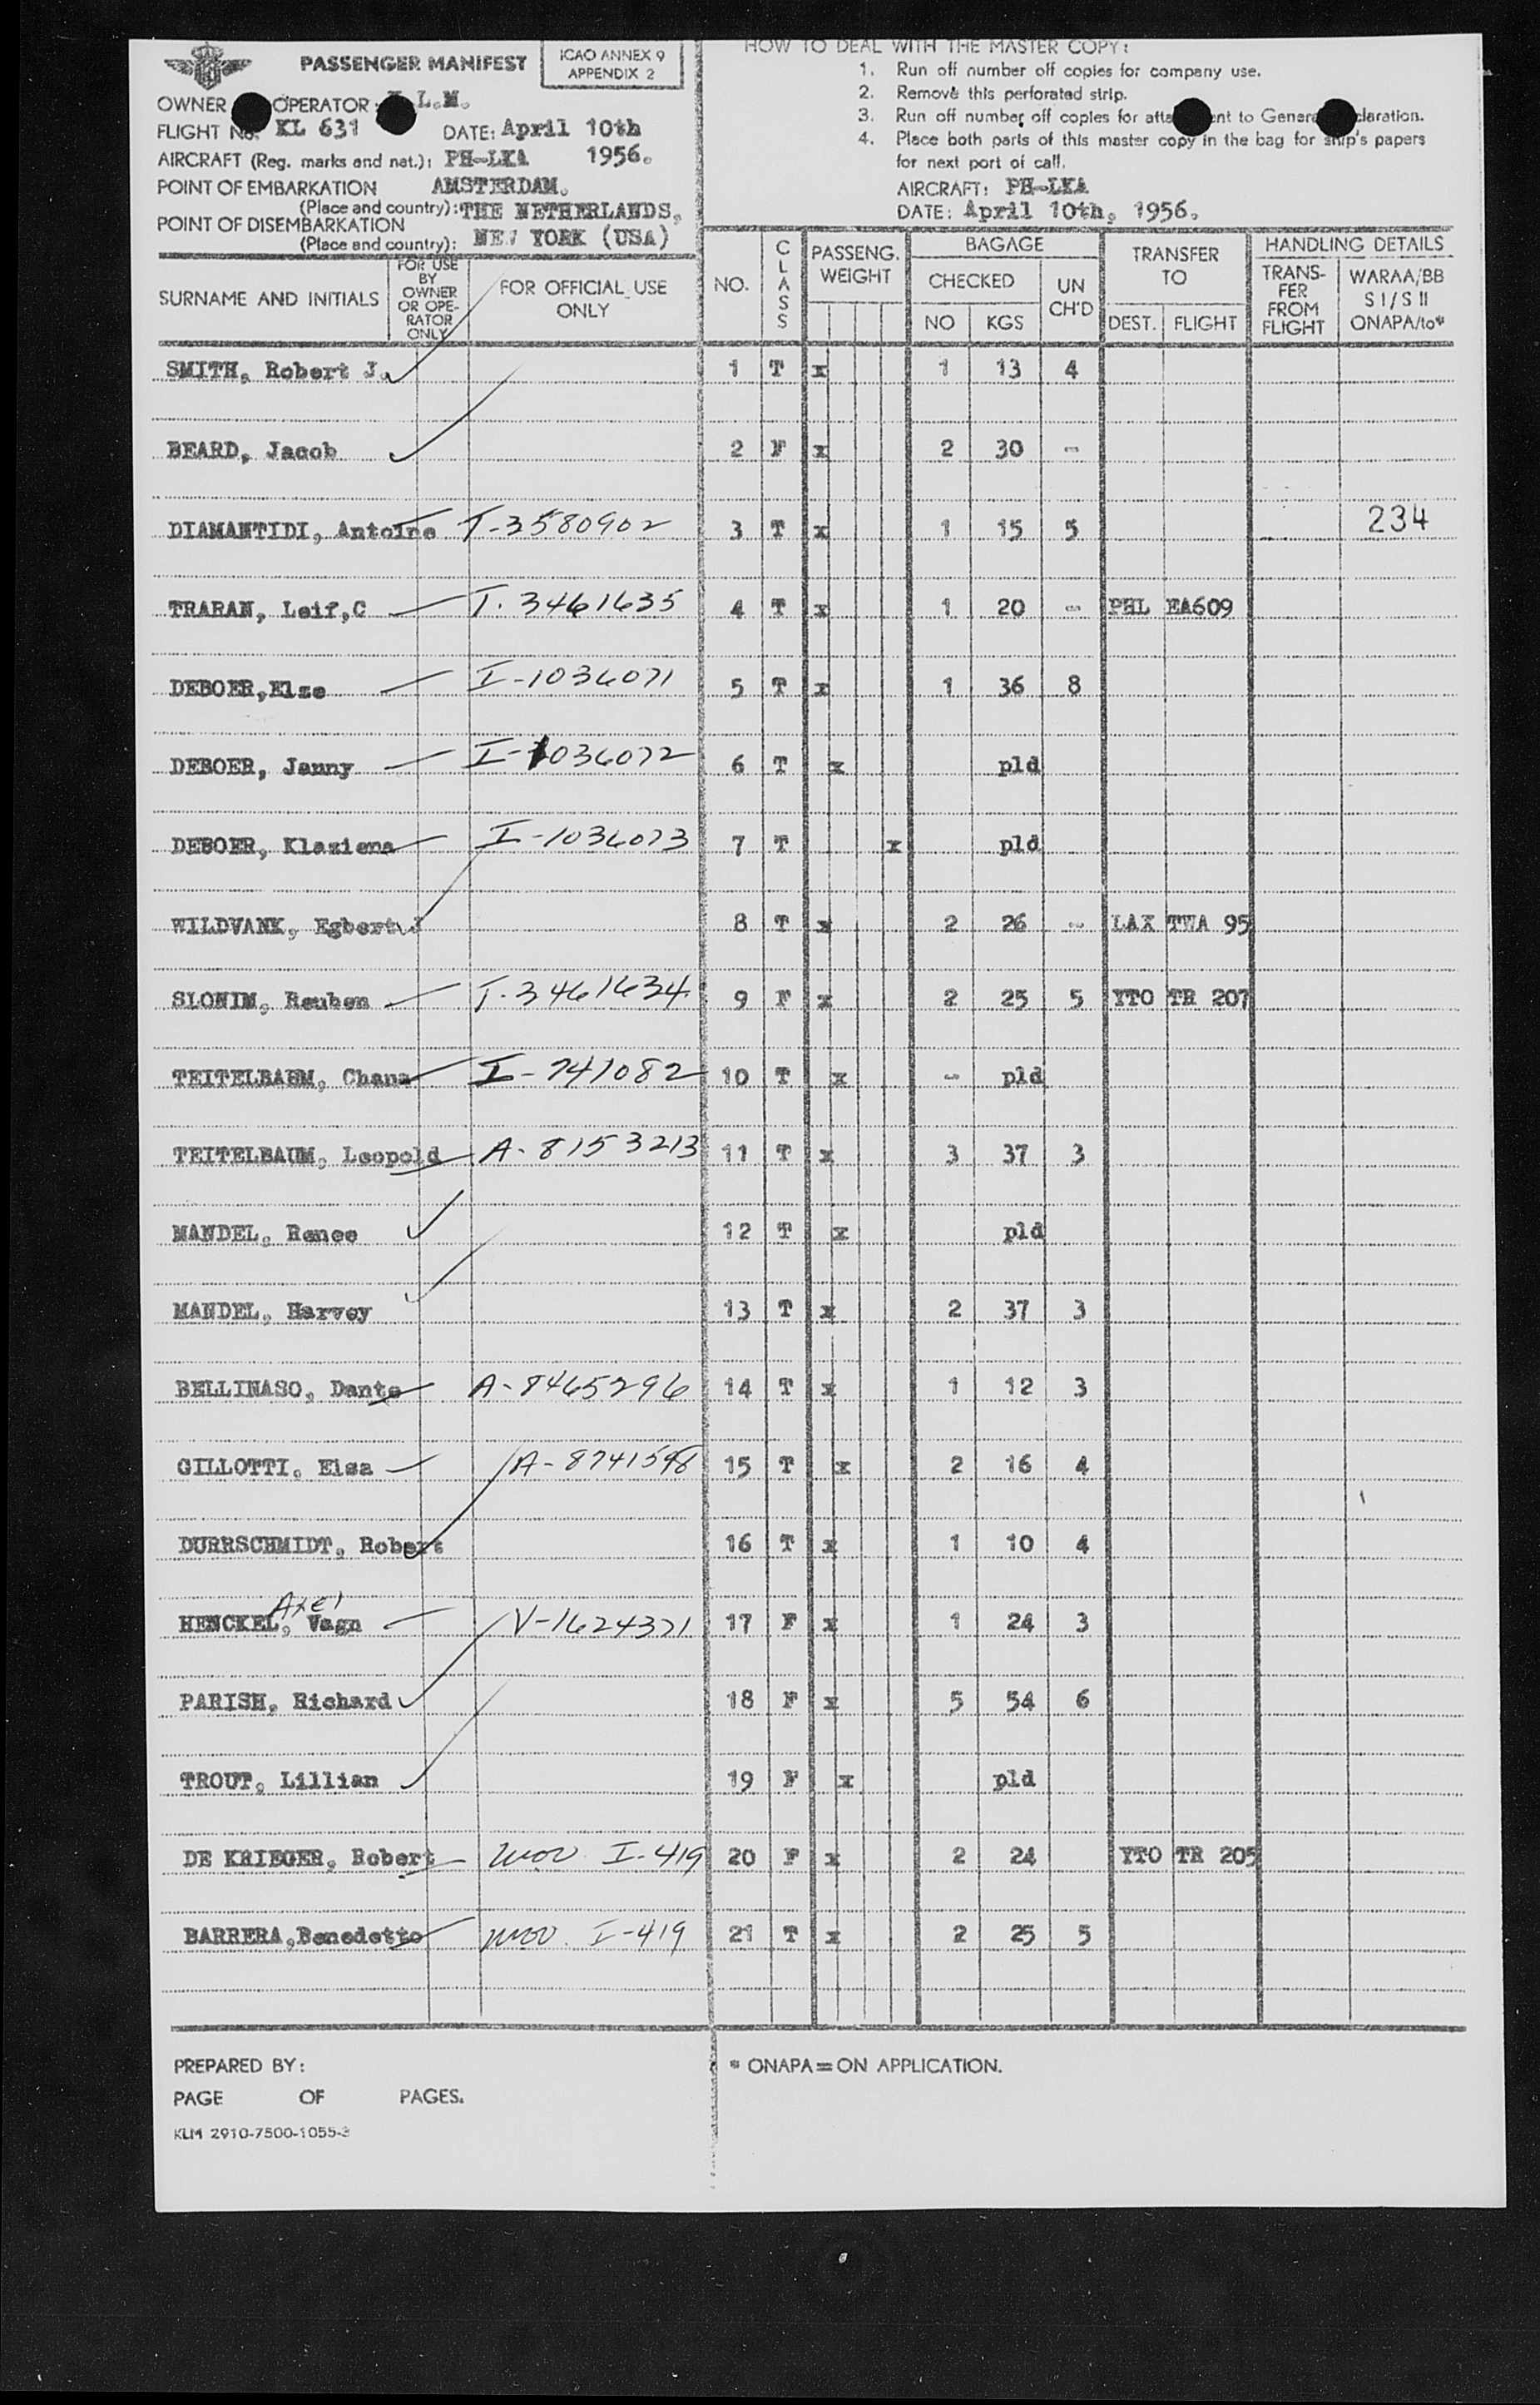 PASSENGER MANIFEST
ICAO ANNEX 9
APPENDIX 2
OWNER OPERATOR: L.M.
FLIGHT No. KL 631 DATE: April 10th
AIRCRAFT (Reg. marks and nat.): PH-LKA 1956.
POINT OF EMBARKATION AMSTERDAM.
(Place and country): THE NETHERLANDS.
POINT OF DISEMBARKATION
(Place and country): NEW YORK (USA)
HOW TO DEAL WITH THE MASTER COPY:
1. Run off number off copies for company use.
2. Remove this perforated strip.
3. Run off number off copies for to
4. Place both parts of this master copy in the bag for ship's papers
for next port of call.
AIRCRAFT: PH-LKA
DATE: April 10th, 1956.
SURNAME AND INITIALS FOR USE BY OWNER OR OPE-RATOR ONLY FOR OFFICIAL USE ONLY NO. CLASS PASSENG. WEIGHT BAGAGE CHECKED NO KGS UN CH'D TRANSFER TO DEST. FLIGHT HANDLING DETAILS TRANS-FER FROM FLIGHT WARAA/BB S I/S II ONAPA/to*
SMITH, Robert J. 1 T x 1 13 4
BEARD, Jacob 2 F x 2 30 -
DIAMANTIDI, Antoine T-3580902 3 T x 1 15 5 234
TRABAN, Leif,C T-3461635 4 T x 1 20 - PHL EA609
DEBOER,Else I-1036071 5 T x 1 36 8
DEBOER, Janny I-1036072 6 T x pld
DEBOER, Klaziena I-1036073 7 T x pld
WILDVANK, Egbert J 8 T x 2 26 - LAX TWA 95
SLONIM, Reuben T-3461634 9 F x 2 25 5 YTO TR 207
TEITELBAUM, Chana I-741082 10 T x - pld
TEITELBAUM, Leopold A-8153213 11 T x 3 37 3
MANDEL, Renee 12 T x pld
MANDEL, Harvey 13 T x 2 37 3
BELLINASO, Dante A-8465296 14 T x 1 12 3
GILLOTTI, Elsa A-8741598 15 T x 2 16 4
DURRSCHMIDT, Robert 16 T x 1 10 4
Axel
HENCKEL, Vagn V-1624371 17 F x 1 24 3
PARISH, Richard 18 F x 5 54 6
TROUT, Lillian 19 F x pld
DE KRIEGER, Robert I-419 20 F x 2 24 YTO TR 205
BARRERA,Benedetto I-419 21 T x 2 25 5
PREPARED BY:
PAGE OF PAGES.
KLM 2910-7500-1055-3
* ONAPA=ON APPLICATION.